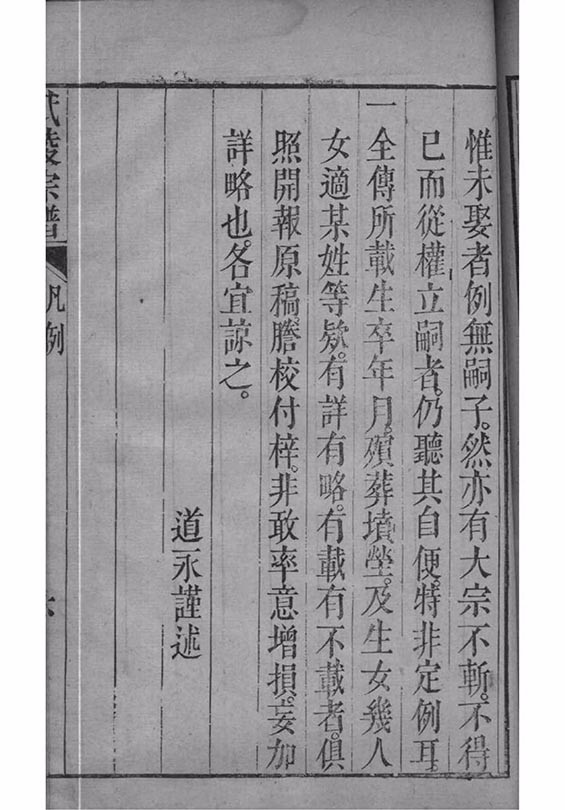 惟未娶者例無嗣子。然亦有大宗不斬。不得
已而從權立嗣者。仍聽其自便。特非定例耳
一全傳所載生卒年月。殯葬墳塋。及生女幾人
女適某姓等欵。有詳有略。有載有不載者。俱
照開報原稿。謄校付梓。非敢率意增損。妄加
詳略也。各宜諒之。
道永謹述
武陵宗譜
凡例